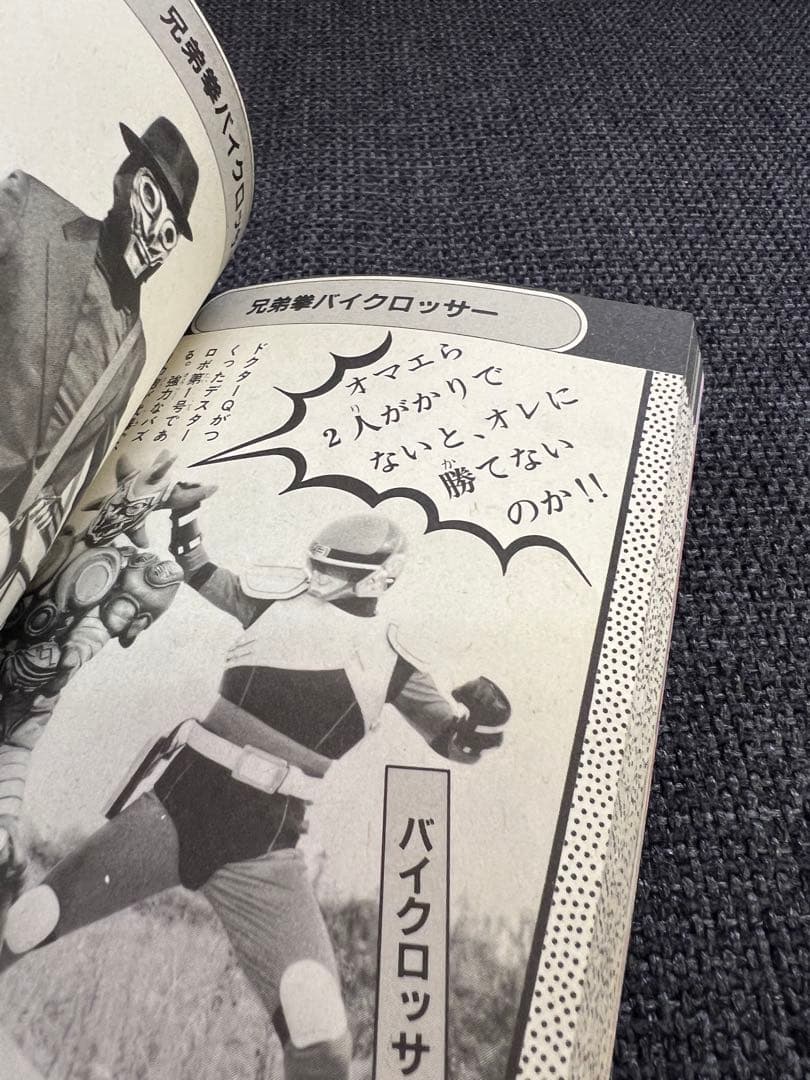 兄弟拳バイクロッサー
兄弟拳バイクロッサー
オマエら
2人がかりで
ないと、オレに
勝てない
のか!!
ドクターQがつ
くったデスター
ロボ第一号であ
る。強力なバズ
バイクロッサ